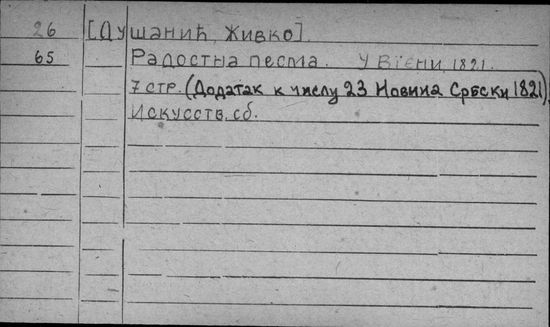 26 [Душанић, Живко].
65 Радостна песма. У Віени, 1821.
7 стр. (Додатак к числу 23 Новина Србски 1821).
Искусств. сб.